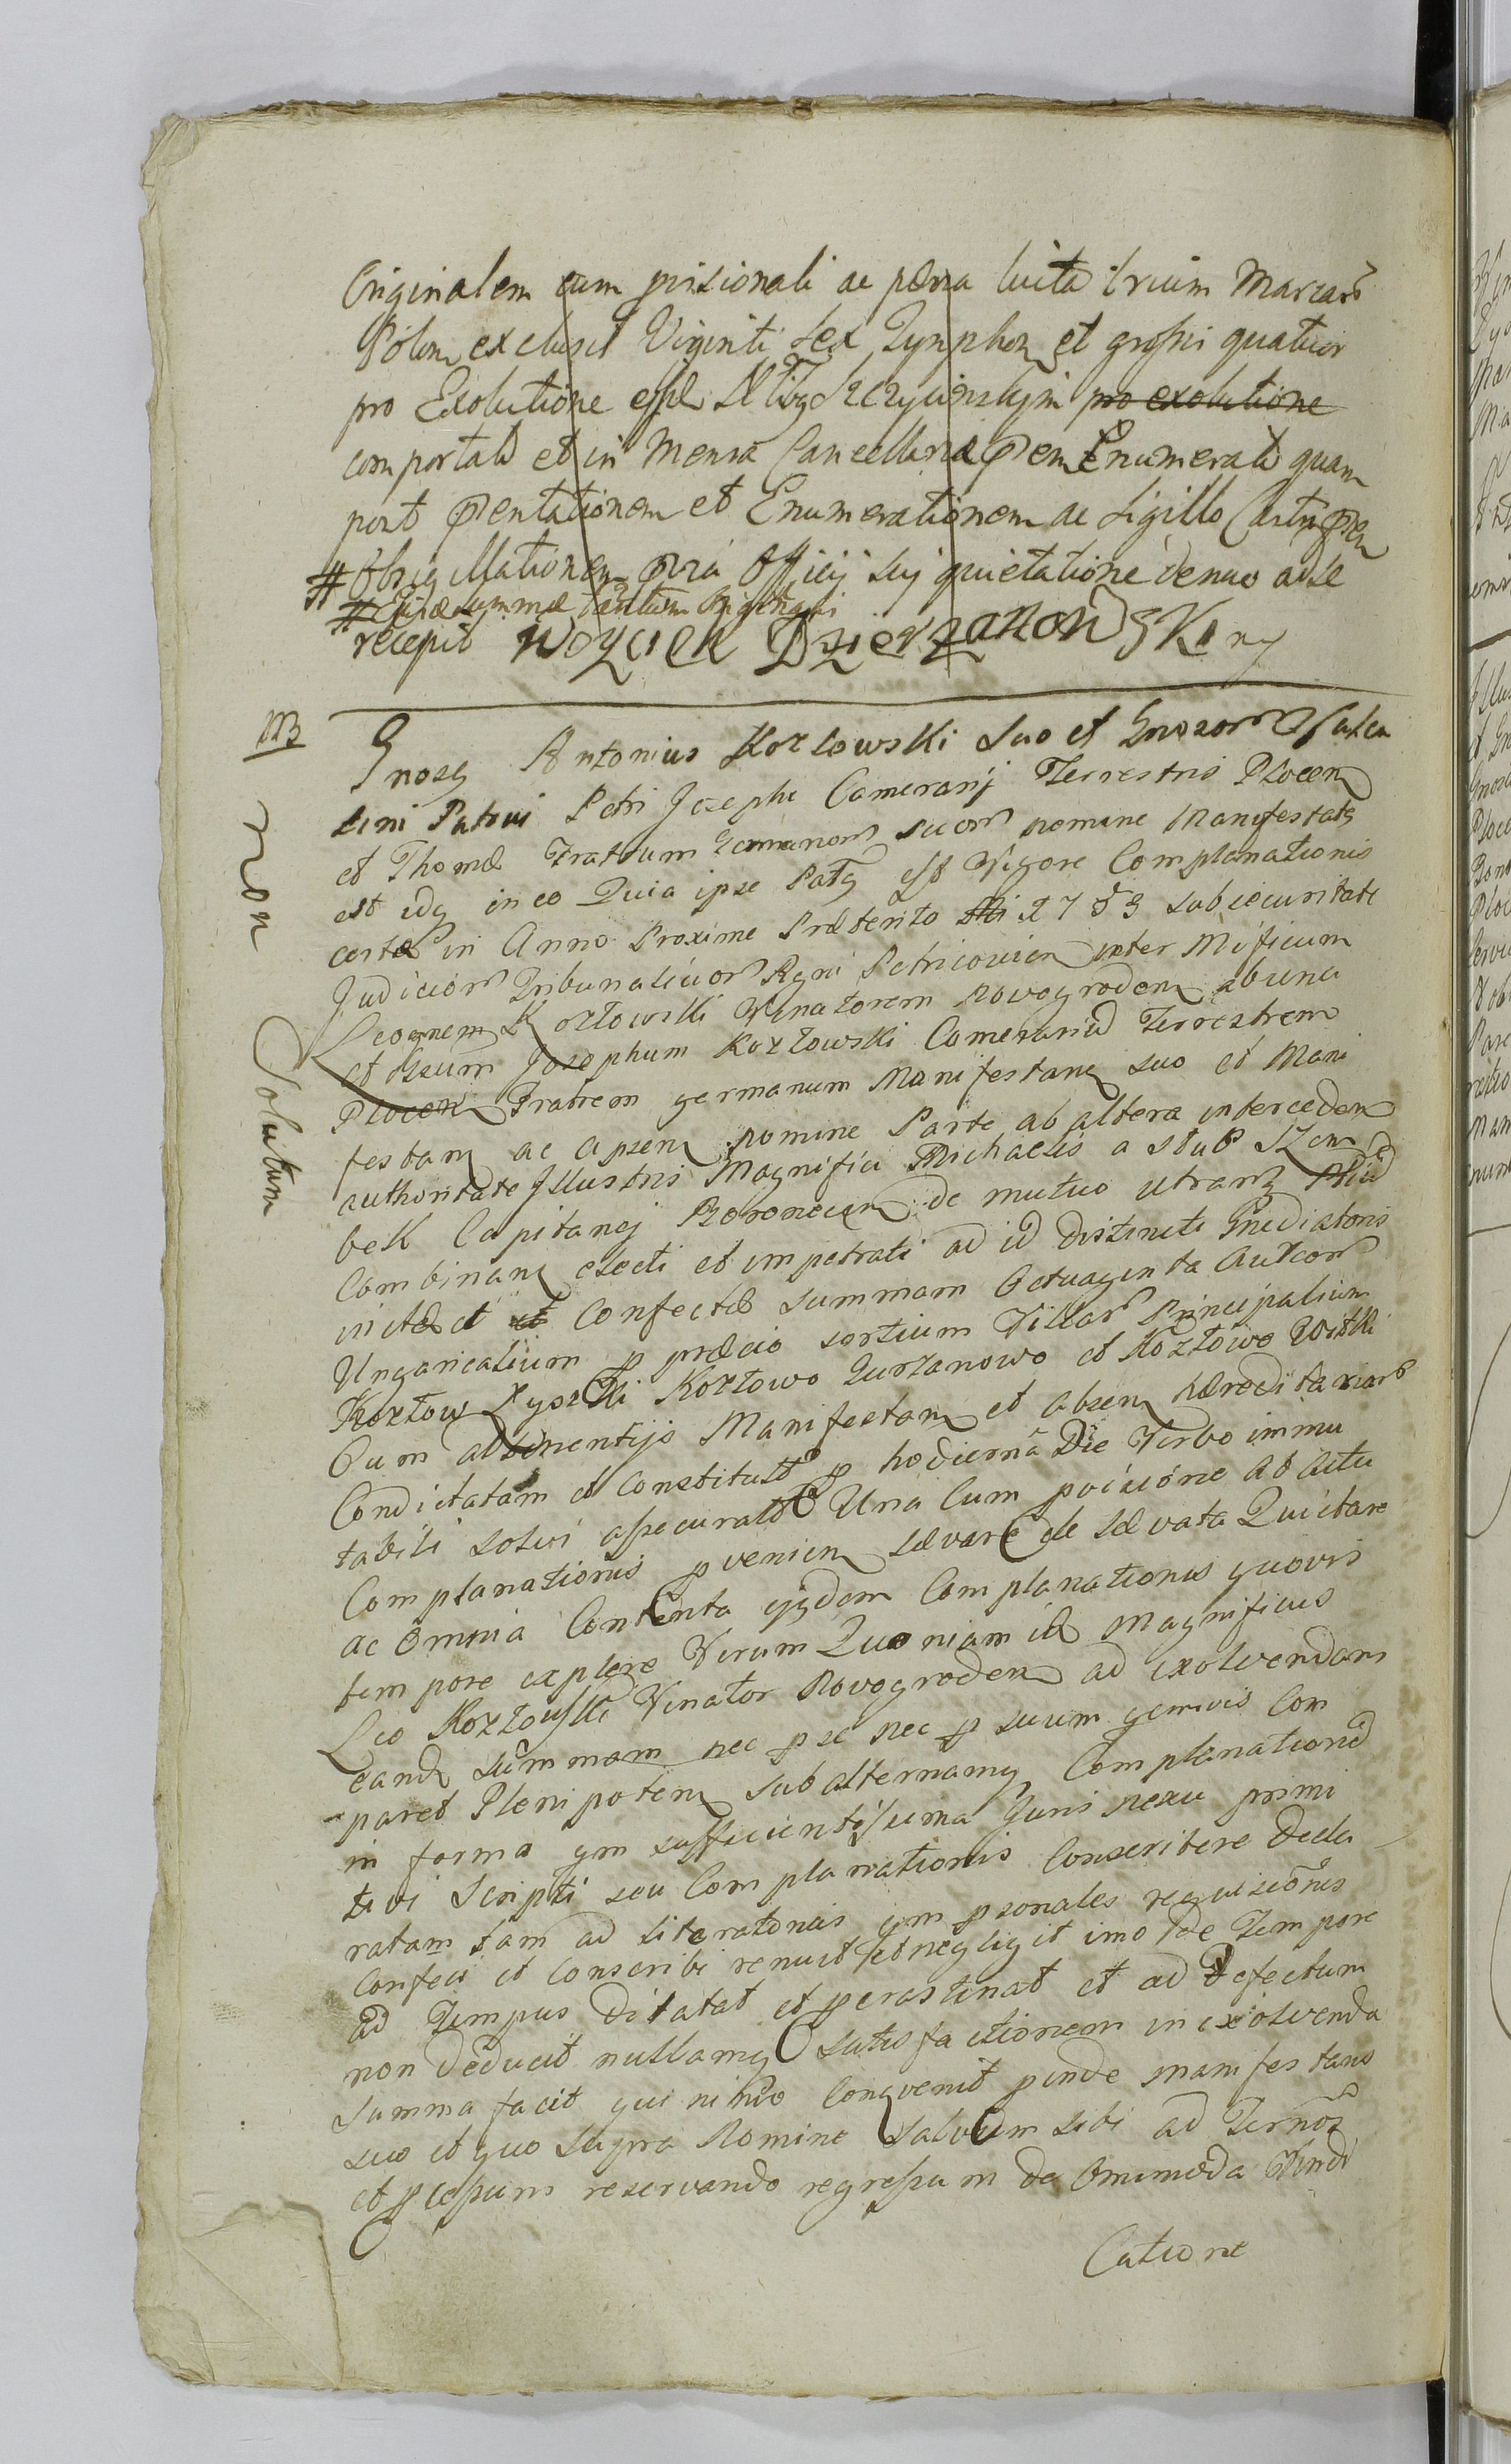 Originalem cum prisionali ac pæna luita trium Marcarū
Polon excludit Viginti sex Tynphon et grossi quatuor
pro Exolutione pro exolutione
comportatā et in Mensa Cancellariæ pñem Enumeratā quam
post pñentationem et Enumerationem ac Sigillo Castri pñen
# Obsigillationem Officij sui quietatione denuo ad se
# summæ tantum
recepit Woyciek Dzierzanowski
NB
Non Solutum
Gnosq Antonius Kozlowski suo et Gnosor
tini Patrui Petri Josephi Camerarij Terrestris Plocen
et Thomæ Fratrum Germanor suor nomine Manifestatq
est idq in eo Quia ipse Patq Vigore Complanationis
certæ in Anno Proxime Præterito 1753 sub securitate
Judicior Tribunalitior Regni Petricovien inter Mificum
Leonem Kozłowski Venatorem Novogroden ab una
et Josephum Kozłowski Camerariū Terrestrem
Plocen Fratrem germanum Manifestan suo et Mani
festan ac apsen nomine Parte ab altera interceden
authoritate Illustris Magnifici Michaelis a Słup Szem
bek Capitanej de mutuo utrarq
Combinan electi et impetrati ad id distincti Mediatoris
initæ et confectæ summam Octuaginta Aureor
Ungaricalium p præcio sortium Villar Principalium
Kozłow Kozłowo Jurzanowo et Kozłowo Witki
Cum adtinentijs Manifestan et absen hæreditariar
Condictatam et Constitutā p hodierna Die Verbo immu
tabili solvi assecuratā Una Cum
Complanationis pvenien levare de levata Quietare
ac omnia Contenta ejqdem Complanationis quovis
tempore explere Verum Quoniam id Magnificus
Leo Kozłowski Venator Novogroden ad exolvendam
eandē summam nec p se nec p suum gemivis Com
paret Plenipoten subalternamq Complanationē
in forma qm sufficientissima Juris nexu primi
tivi Scripti seu Complanationis Conscribere decla
ratam tam ad literatorias qm psonales requisiones
Confeci et Conscribi renuit et negligit imo de Tempore
ad Tempus dilatat et pcrastinat et ad Defectum
non deducit nullamq satisfactionem in exolvenda
Summa facit qui nimo Conqvenit pinde manifestans
suo et quo supra Nomine Salvum sibi ad
et reservando regressum de Omnimoda Vindi
Catione